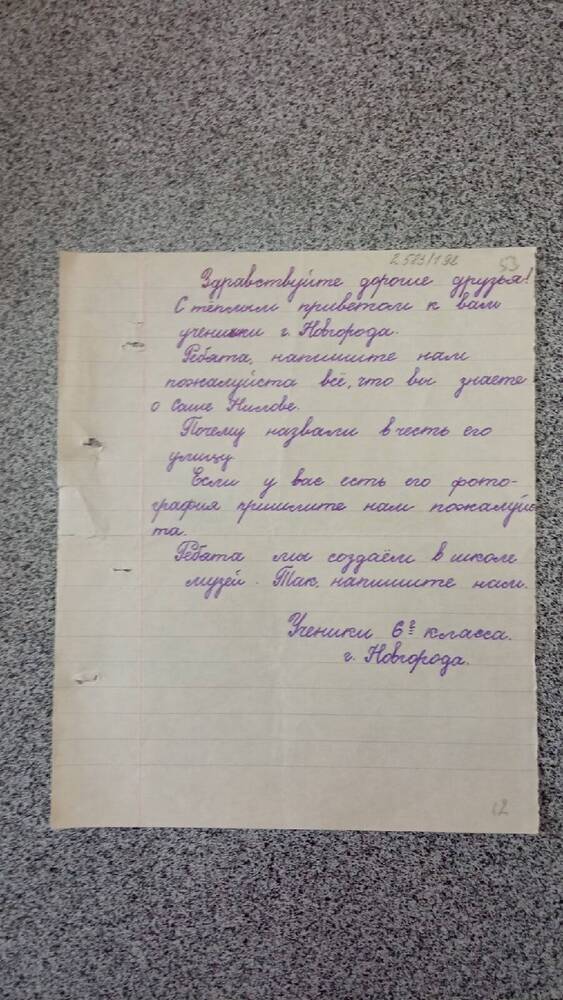 2523/192
53
Здравствуйте дорогие друзья!
С тёплым приветом к вам
ученики г. Новгорода.
Ребята, напишите нам
пожалуйста всё, что вы знаете
о Саше
Почему назвали в честь его
улицу
Если у вас есть его фото-
графия пришлите нам пожалуйс
та.
Ребята мы создаём в школе
музей. Так, напишите нам.
Ученики 6 класса.
г. Новгорода.
12